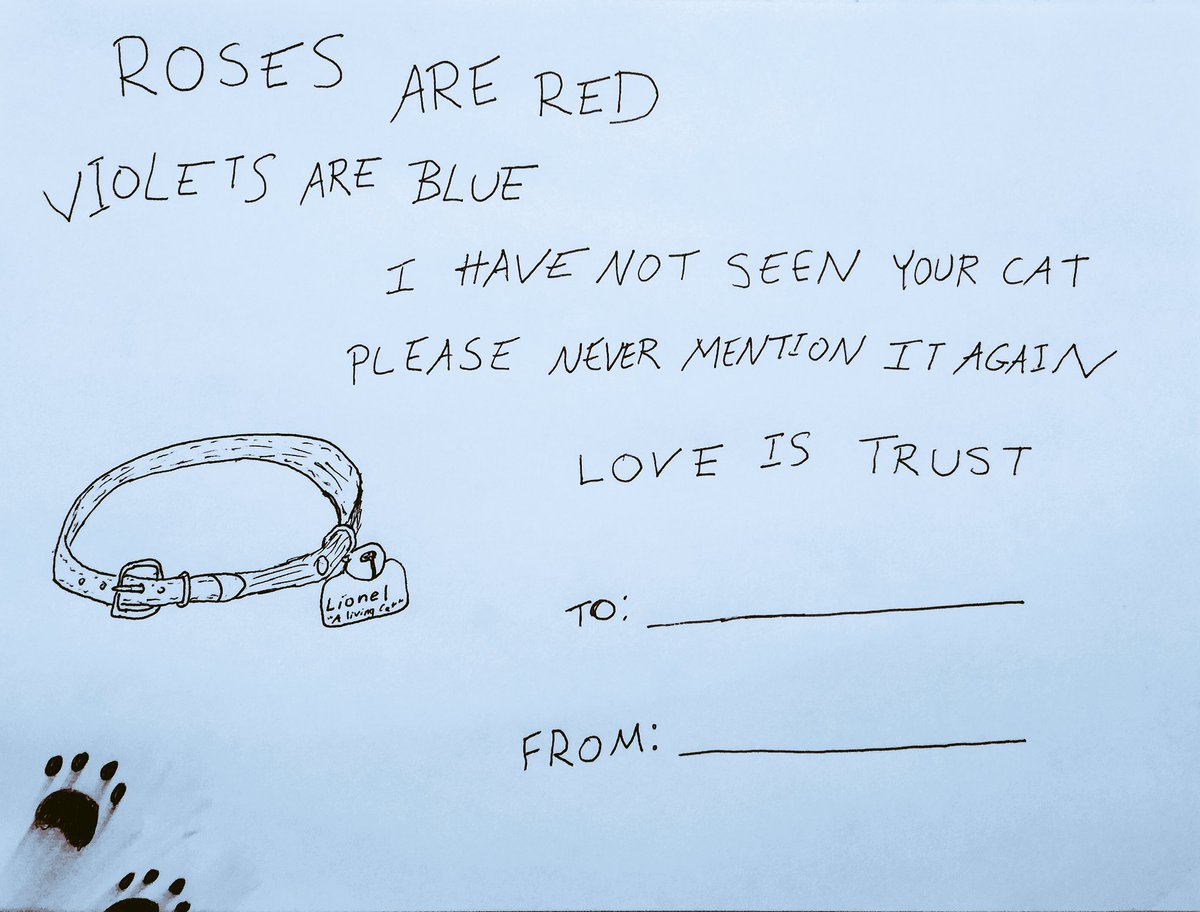 ROSES ARE RED
VIOLETS ARE BLUE
I HAVE NOT SEEN YOUR CAT
PLEASE NEVER MENTION IT AGAIN
LOVE IS TRUST
Lionel
"A living Cat"
TO:
FROM: